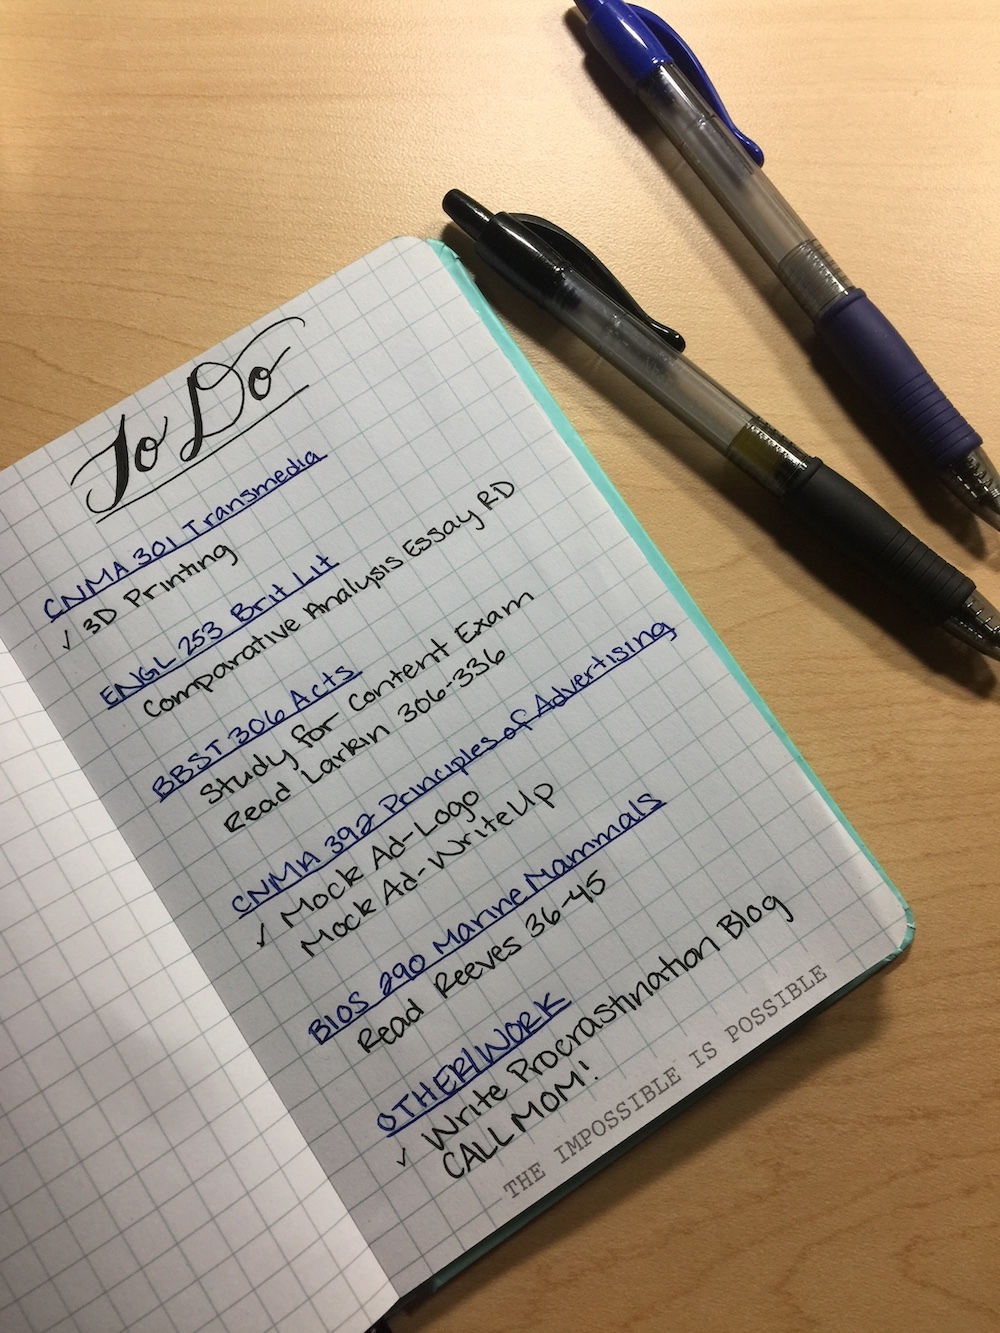 To Do
CNMA 301 Transmedia
✓ 3D Printing
ENGL 253 Brit Lit
Comparative Analysis Essay RD
BBST 306 Acts
Study for Content Exam
Read Larkin 306-336
CNMA 392 Principles of Advertising
✓ Mock Ad-Logo
Mock Ad-Write Up
BIOS 290 Marine Mammals
Read Reeves 36-45
OTHER/WORK
✓ Write Procrastination Blog
CALL MOM!
THE IMPOSSIBLE IS POSSIBLE